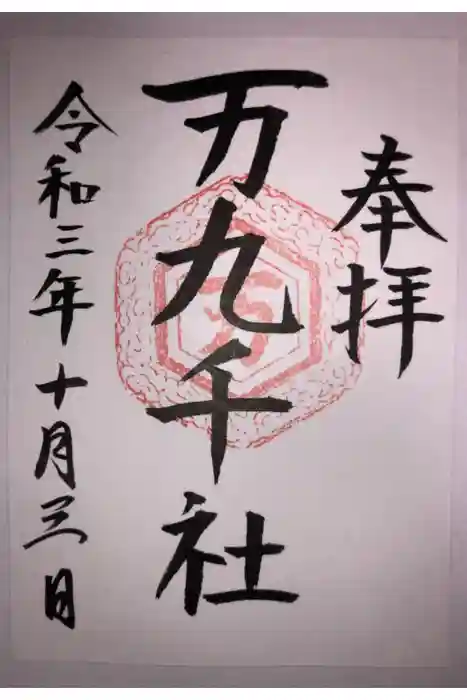 奉拝
万九千社
令和三年十月三日